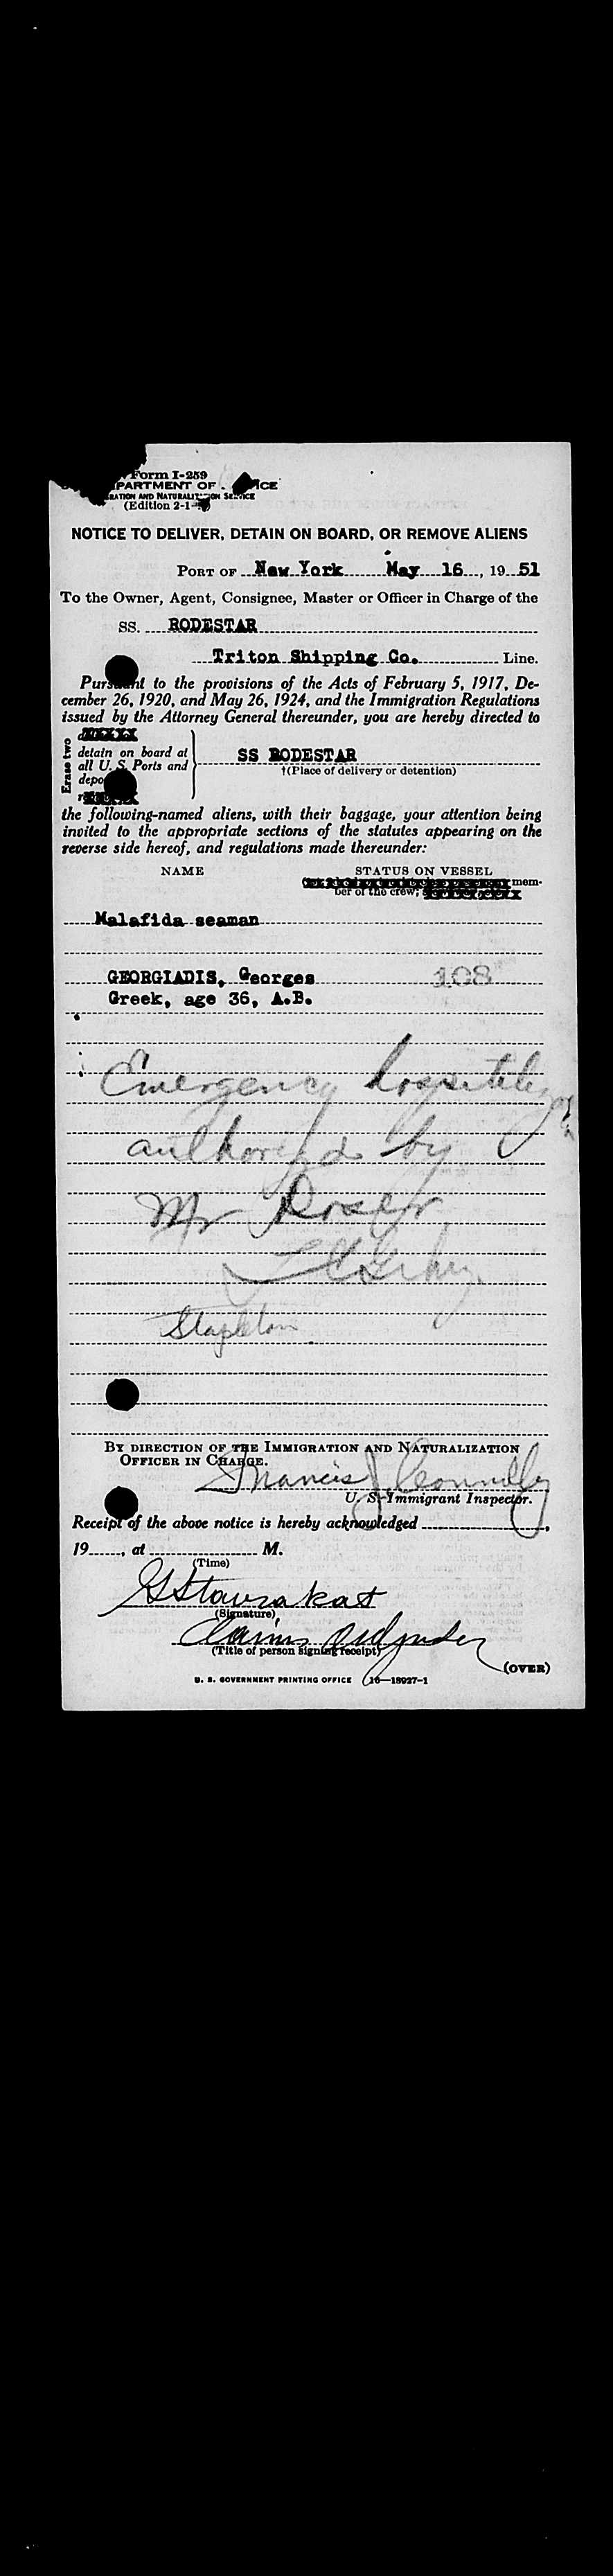 Form I-259
DEPARTMENT OF
NATURALIZATION SERVICE
(Edition 2-1-
NOTICE TO DELIVER, DETAIN ON BOARD, OR REMOVE ALIENS
PORT OF New York May 16, 19 51
To the Owner, Agent, Consignee, Master or Officer in Charge of the
SS. RODESTAR
Triton Shipping Co. Line.
Pursuant to the provisions of the Acts of February 5, 1917, De-
cember 26, 1920, and May 26, 1924, and the Immigration Regulations
issued by the Attorney General thereunder, you are hereby directed to
Erase two
detain on board at
all U. S. Ports and
SS RODESTAR
†(Place of delivery or detention)
the following-named aliens, with their baggage, your attention being
invited to the appropriate sections of the statutes appearing on the
reverse side hereof, and regulations made thereunder:
NAME STATUS ON VESSEL
mem-
ber of the crew;
Malafida seaman
GEORGIADIS, Georges 108
Greek, age 36, A.B.
Emergency
authorized by
Mr
Stapleton
BY DIRECTION OF THE IMMIGRATION AND NATURALIZATION
OFFICER IN CHARGE.
Francis J Connolly
U. S. Immigrant Inspector.
Receipt of the above notice is hereby acknowledged
19, at M.
(Time)
(Signature)
(Title of person signing receipt)
(OVER)
U. S. GOVERNMENT PRINTING OFFICE 16—18927-1